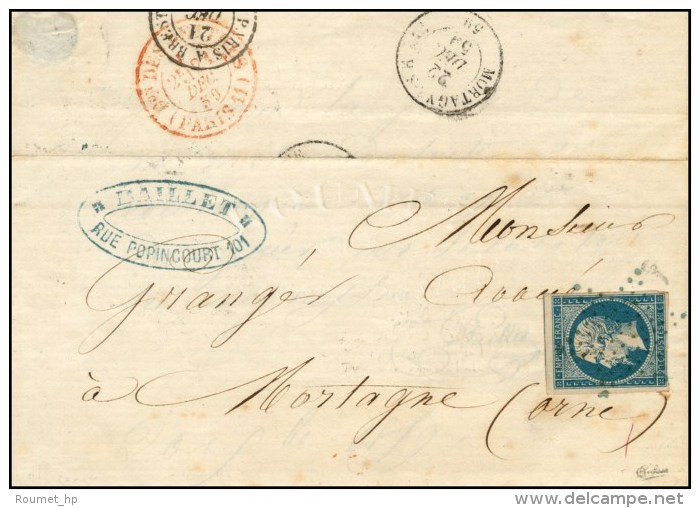 PARIS A BREST
21
DEC
DEC
59
(PARIS)
MORTAGNE
22
DEC
59
" BAILLET "
RUE POPINCOURT 101
Monsieur
Grangér Avoué
à Mortagne (orne)
EMPIRE FRANC
POSTES
Roumet_hp
delcampe.net